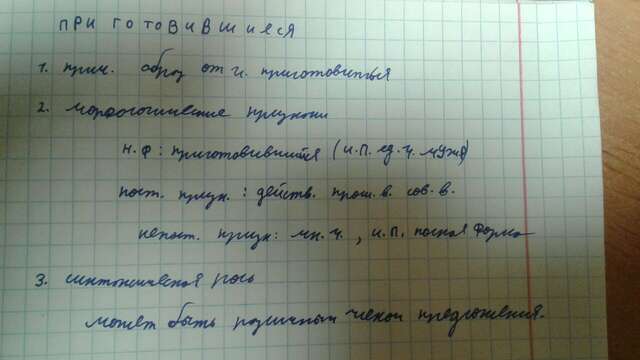 ПРИГОТОВИВШИЕСЯ
1. прич. образ от г. приготовиться
2. морфологические признаки
н.ф: приготовившийся (и.п. ед.ч. муж)
пост. призн.: действ. прош.в. сов.в.
непост. призн: мн.ч., и.п. полная форма
3. синтаксическая роль
может быть различным членом предложения.